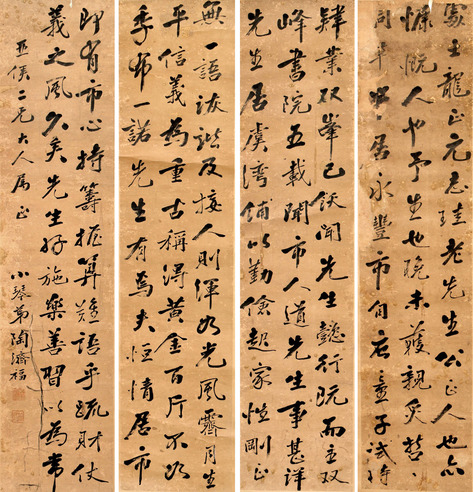 士龍正元志老先生公正人也亦
慷慨人也予生也晚未獲親炙哲
居永豐市自應童子試時
肄業双峯已飫聞先生懿行既而主双
峰書院五載聞市人道先生事甚詳
先生居虞灣鋪以勤儉起家性剛正
無一語詼諧及接人則渾如光風霽月生
平信義為重古稱得黃金百斤不如
季布一諾先生有焉夫恒情居市
即有市心持籌握算難語乎疏財仗
義之風久矣先生好施樂善習以為常
亞侯二兄大人属正
小琴弟陶濟福